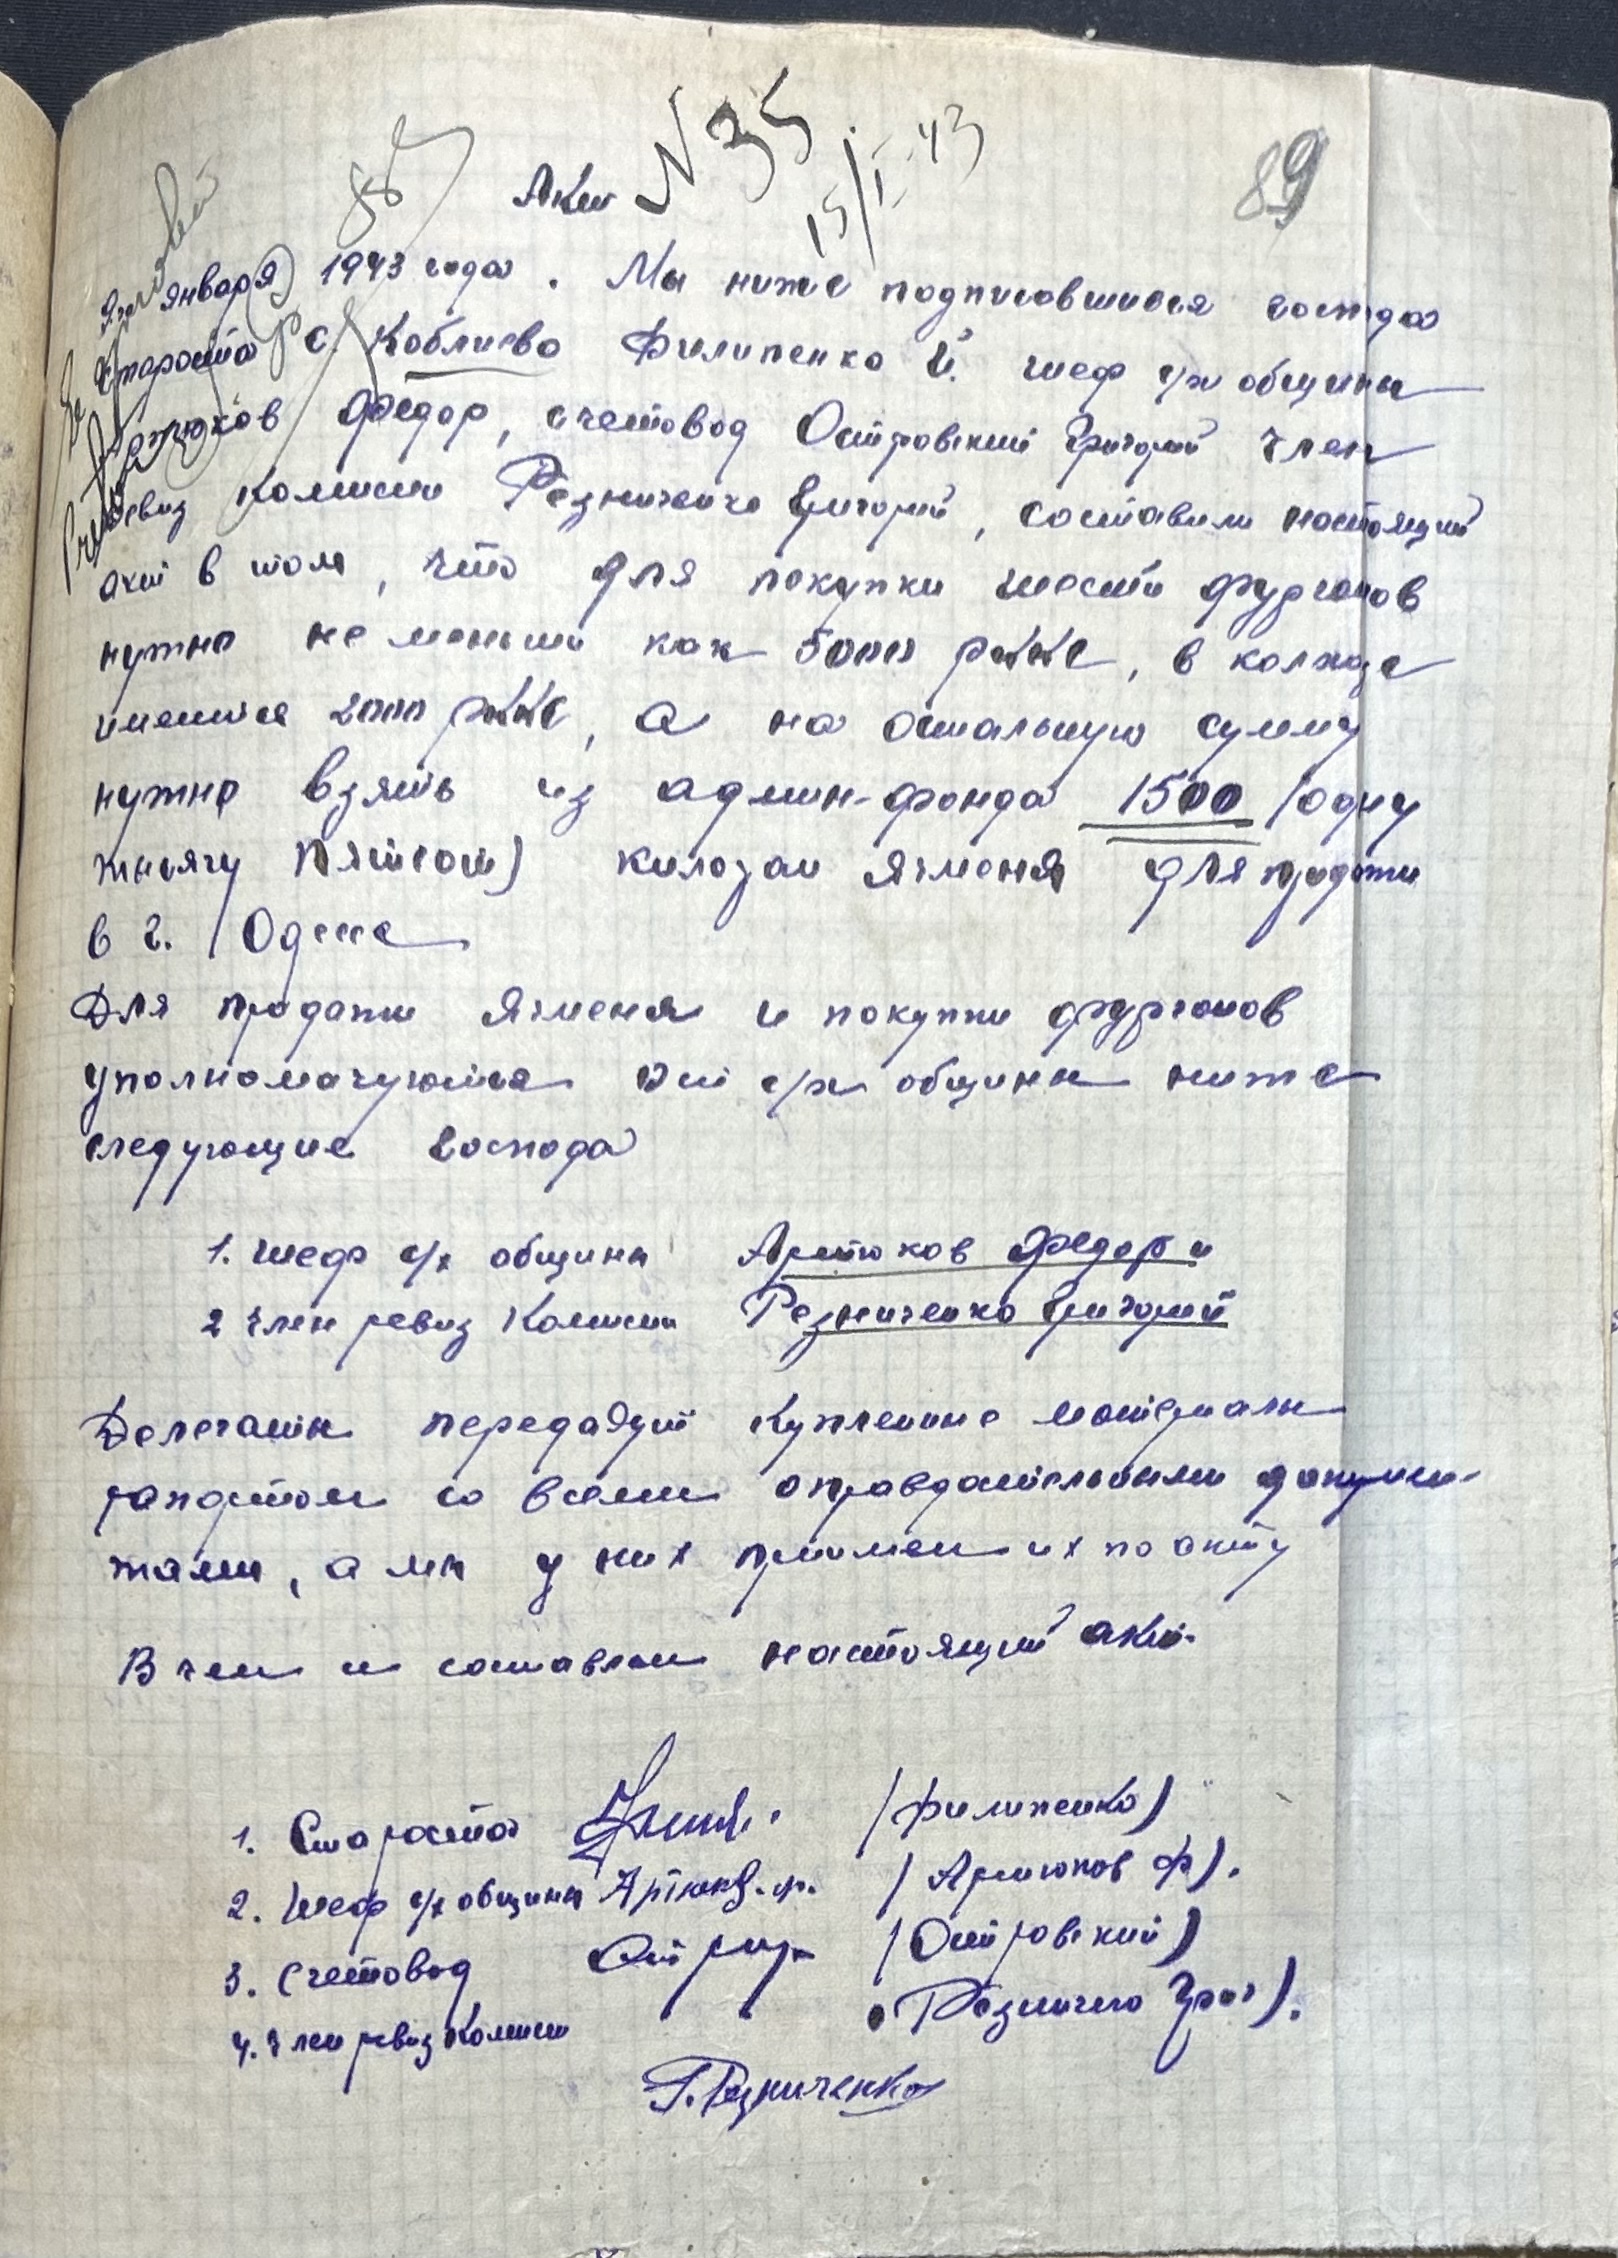 Акт N 35
15/I-43
89
88
января 1943 года. Мы ниже подписовшиеся господа
Староста с. Коблиево Филипенко И. шеф с/х общины
Артюков Федор, счетовод Островский Григорий член
ревиз комисии Резниченко Григорий, составили настоящий
акт в том, что для покупки шести фургонов
нужно не меньши как 5000 РККС, в колхозе
имеется 2000 РККС, а на остальную сумму
нужно взять из админ-фонда 1500 /одну
тысячу пятсот) килограм ячменя для продажи
в г. Одесе
Для продажи ячменя и покупки фургонов
уполномачуются от с/х общины ниже
следующие господа
1. шеф с/х общины Артюков Федор и
2 член ревиз комисии Резниченко Григорий
Делегаты передадут купленные материалы
рапортом со всеми оправдательными докумен-
тами, а мы у них примем их по акту
В чем и составлен настоящий акт.
1. Староста /Филипенко)
2. Шеф с/х общины Артюков.Ф. /Артюков Ф).
3. Счетовод Остр /Островский)
4. Член ревиз комисии Резниченко Григ).
Г. Резниченко